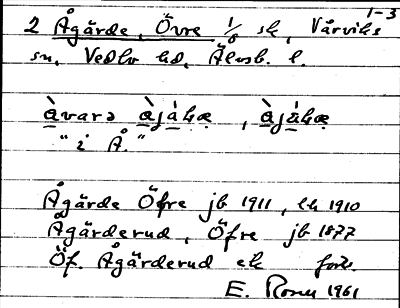 1-3
2 Ågärde, Övre 1/8 sk, Vårviks
sn, Vedbo hd, Älvsb. l.
àvarə àjákæ, àjákæ
" i Å. "
Ågärde Öfre jb 1911, ek 1910
Ågärderud, Öfre jb 1877
Öf. Ågärderud ek
E. 1961